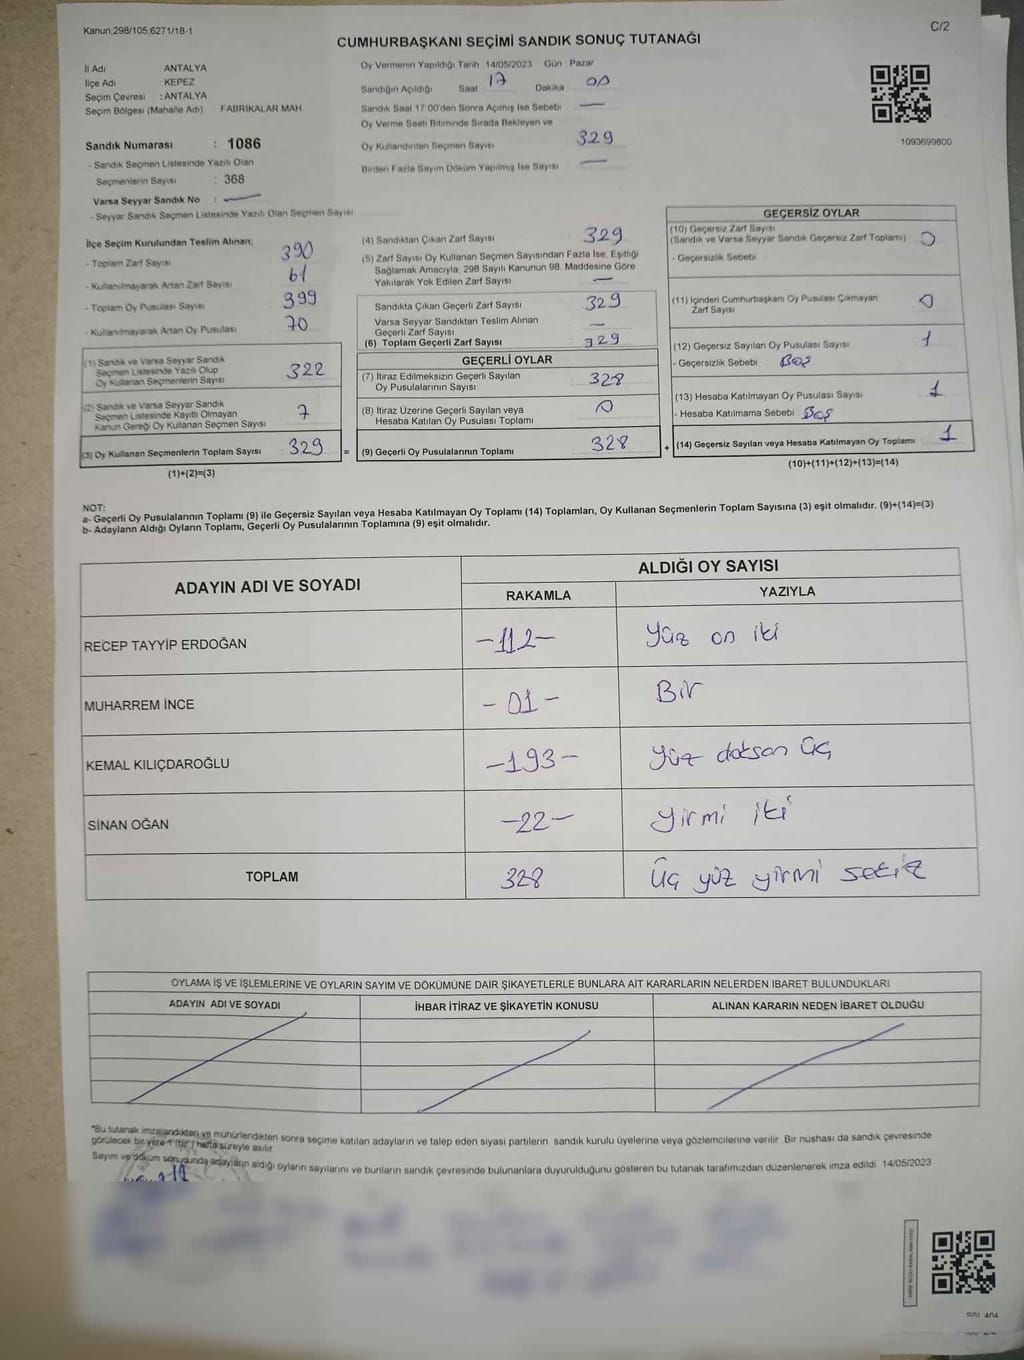 Kanun;298/105,6271/18-1
C/2
CUMHURBAŞKANI SEÇİMİ SANDIK SONUÇ TUTANAĞI
İl Adı ANTALYA
İlçe Adı KEPEZ
Seçim Çevresi : ANTALYA
Seçim Bölgesi (Mahalle Adı) FABRIKALAR MAH.
Sandık Numarası : 1086
- Sandık Seçmen Listesinde Yazılı Olan
Seçmenlerin Sayısı : 368
Varsa Seyyar Sandık No : —
- Seyyar Sandık Seçmen Listesinde Yazılı Olan Seçmen Sayısı
Oy Vermenin Yapıldığı Tarih 14/05/2023 Gün Pazar
Sandığın Açıldığı Saat 17 Dakika 00
Sandık Saat 17.00'den Sonra Açımış İse Sebebi —
Oy Verme Saati Bitiminde Sırada Bekleyen ve
Oy Kullandırılan Seçmen Sayısı 329
Birden Fazla Sayım Döküm Yapılmış İse Sayısı —
1093699800
İlçe Seçim Kurulundan Teslim Alınan;
- Toplam Zarf Sayısı 390
- Kullanılmayarak Artan Zarf Sayısı 61
- Toplam Oy Pusulası Sayısı 399
- Kullanılmayarak Artan Oy Pusulası 70
(1) Sandık ve Varsa Seyyar Sandık
Seçmen Listesinde Yazılı Olup
Oy Kullanan Seçmenlerin Sayısı 322
(2) Sandık ve Varsa Seyyar Sandık
Seçmen Listesinde Kayıtlı Olmayan
Kanun Gereği Oy Kullanan Seçmen Sayısı 7
(3) Oy Kullanan Seçmenlerin Toplam Sayısı : 329 =
(1)+(2)=(3)
(4) Sandıktan Çıkan Zarf Sayısı 329
(5) Zarf Sayısı Oy Kullanan Seçmen Sayısından Fazla İse, Eşitliği
Sağlamak Amacıyla; 298 Sayılı Kanunun 98. Maddesine Göre
Yakılarak Yok Edilen Zarf Sayısı —
Sandıkta Çıkan Geçerli Zarf Sayısı 329
Varsa Seyyar Sandıktan Teslim Alınan
Geçerli Zarf Sayısı —
(6) Toplam Geçerli Zarf Sayısı 329
GEÇERLİ OYLAR
(7) İtiraz Edilmeksizin Geçerli Sayılan
Oy Pusulalarının Sayısı 328
(8) İtiraz Üzerine Geçerli Sayılan veya
Hesaba Katılan Oy Pusulası Toplamı 0
(9) Geçerli Oy Pusulalarının Toplamı 328 +
GEÇERSİZ OYLAR
(10) Geçersiz Zarf Sayısı
(Sandık ve Varsa Seyyar Sandık Geçersiz Zarf Toplamı) 0
- Geçersizlik Sebebi
(11) İçinden Cumhurbaşkanı Oy Pusulası Çıkmayan
Zarf Sayısı 0
(12) Geçersiz Sayılan Oy Pusulası Sayısı 1
- Geçersizlik Sebebi Boş
(13) Hesaba Katılmayan Oy Pusulası Sayısı 1
- Hesaba Katılmama Sebebi Boş
(14) Geçersiz Sayılan veya Hesaba Katılmayan Oy Toplamı 1
(10)+(11)+(12)+(13)=(14)
NOT:
a- Geçerli Oy Pusulalarının Toplamı (9) ile Geçersiz Sayılan veya Hesaba Katılmayan Oy Toplamı (14) Toplamları, Oy Kullanan Seçmenlerin Toplam Sayısına (3) eşit olmalıdır. (9)+(14)=(3)
b- Adayların Aldığı Oyların Toplamı, Geçerli Oy Pusulalarının Toplamına (9) eşit olmalıdır.
ADAYIN ADI VE SOYADI ALDIĞI OY SAYISI
RAKAMLA YAZIYLA
RECEP TAYYİP ERDOĞAN -112- Yüz on iki
MUHARREM İNCE - 01 - Bir
KEMAL KILIÇDAROĞLU -193- Yüz doksan üç
SİNAN OĞAN -22- Yirmi iki
TOPLAM 328 Üç yüz yirmi sekiz
OYLAMA İŞ VE İŞLEMLERİNE VE OYLARIN SAYIM VE DÖKÜMÜNE DAİR ŞİKAYETLERLE BUNLARA AİT KARARLARIN NELERDEN İBARET BULUNDUKLARI
ADAYIN ADI VE SOYADI İHBAR İTİRAZ VE ŞİKAYETİN KONUSU ALINAN KARARIN NEDEN İBARET OLDUĞU
*Bu tutanak imzalandıktan ve mühürlendikten sonra seçime katılan adayların ve talep eden siyasi partilerin sandık kurulu üyelerine veya gözlemcilerine verilir. Bir nüshası da sandık çevresinde
görülecek bir yere 1 (bir) hafta süreyle asılır
Sayım ve döküm sonuçunda adayların aldığı oyların sayılarını ve bunların sandık çevresinde bulunanlara duyurulduğunu gösteren bu tutanak tarafımızdan düzenlenerek imza edildi 14/05/2023